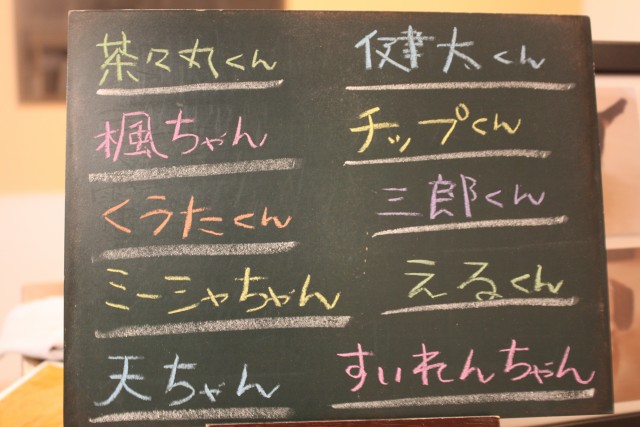 茶々丸くん
楓ちゃん
くうたくん
ミーシャちゃん
天ちゃん
健太くん
チップくん
三郎くん
えるくん
すいれんちゃん